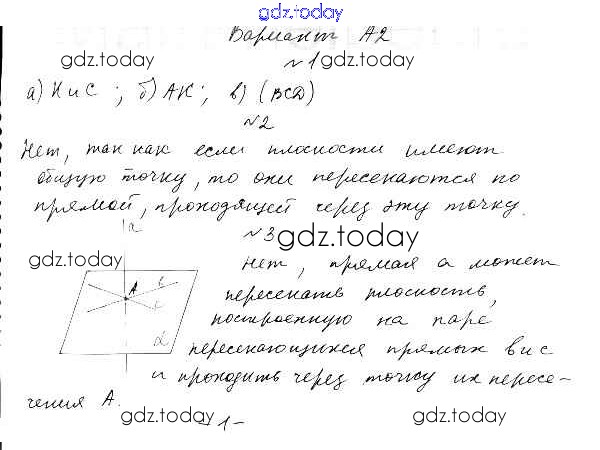 gdz.today
Вариант А2
gdz.today №1 gdz.today
а) К и С ; б) АК ; в) (ВСД)
№2
Нет, так как если плоскости имеют
общую точку, то они пересекаются по
прямой, проходящей через эту точку.
а
№3 gdz.today
gdz.today
Нет, прямая а может
А в
с
α
пересекать плоскость,
построенную на паре
пересекающихся прямых в и с
и проходить через точку их пересе-
чения А.
gdz.today - 1 - gdz.today